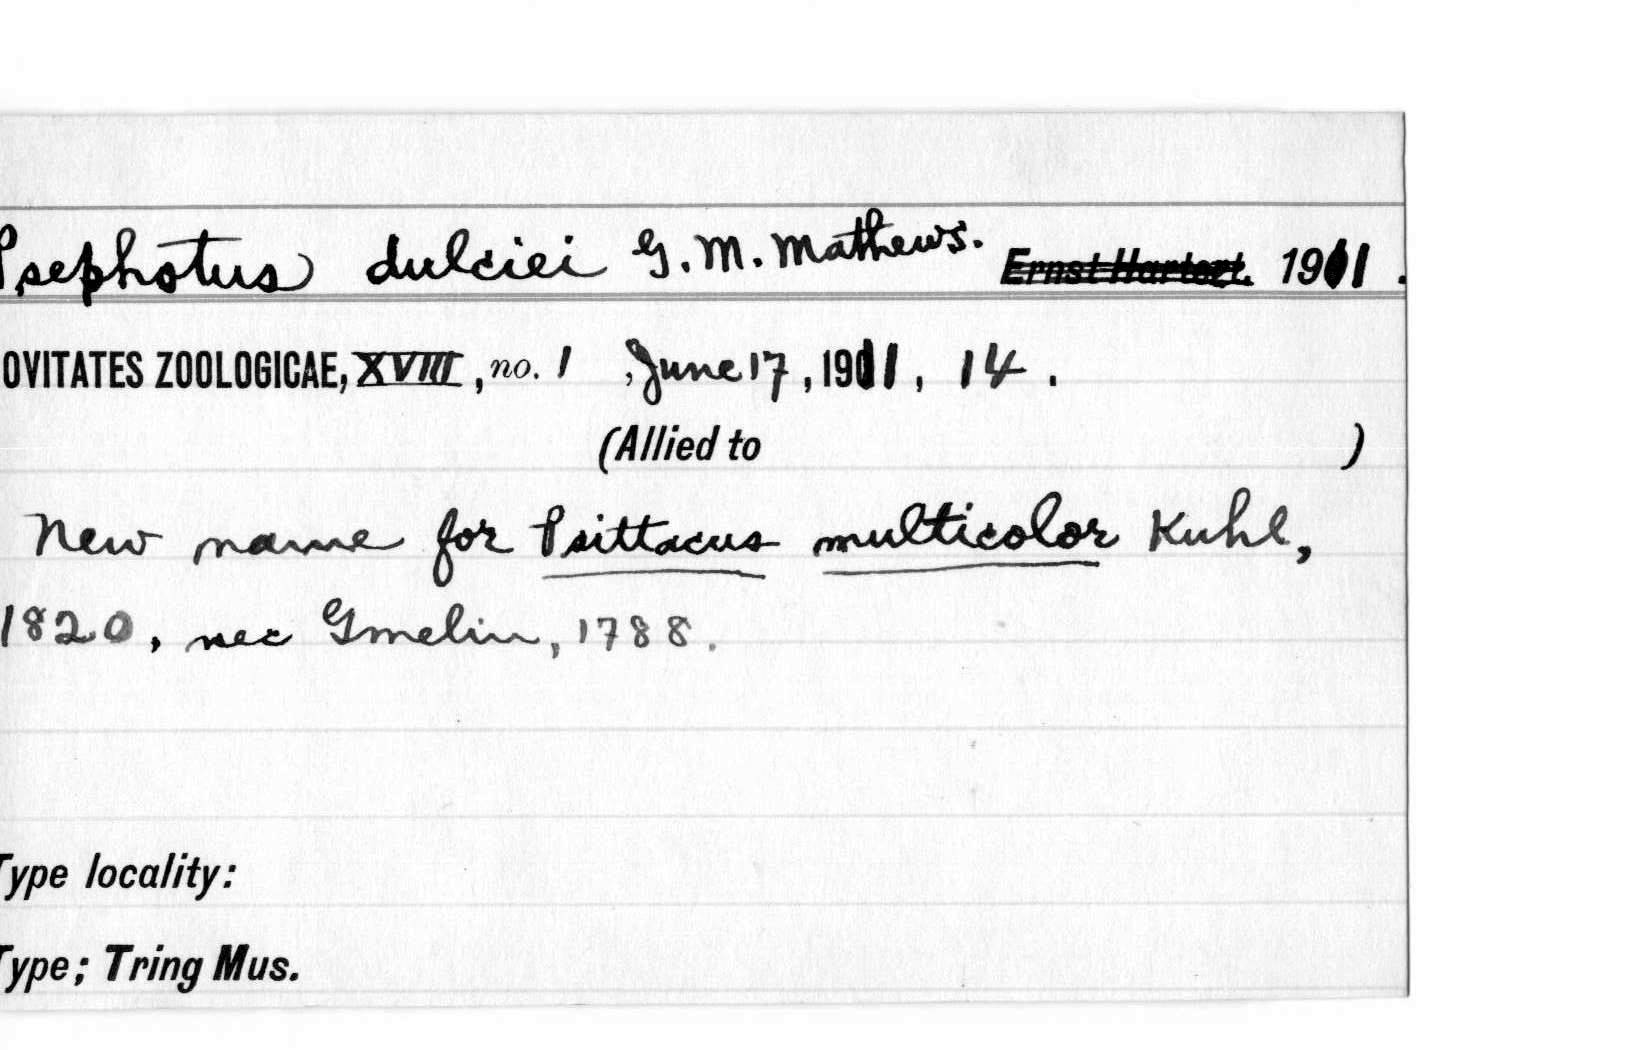 Psephotus dulciei G. M. Mathews. Ernst Hartert. 1911.
OVITATES ZOOLOGICAE, XVIII, no. 1, June 17, 1911, 14.
(Allied to )
New name for Psittacus multicolor Kuhl,
1820, nec Gmelin, 1788.
Type locality:
Type; Tring Mus.